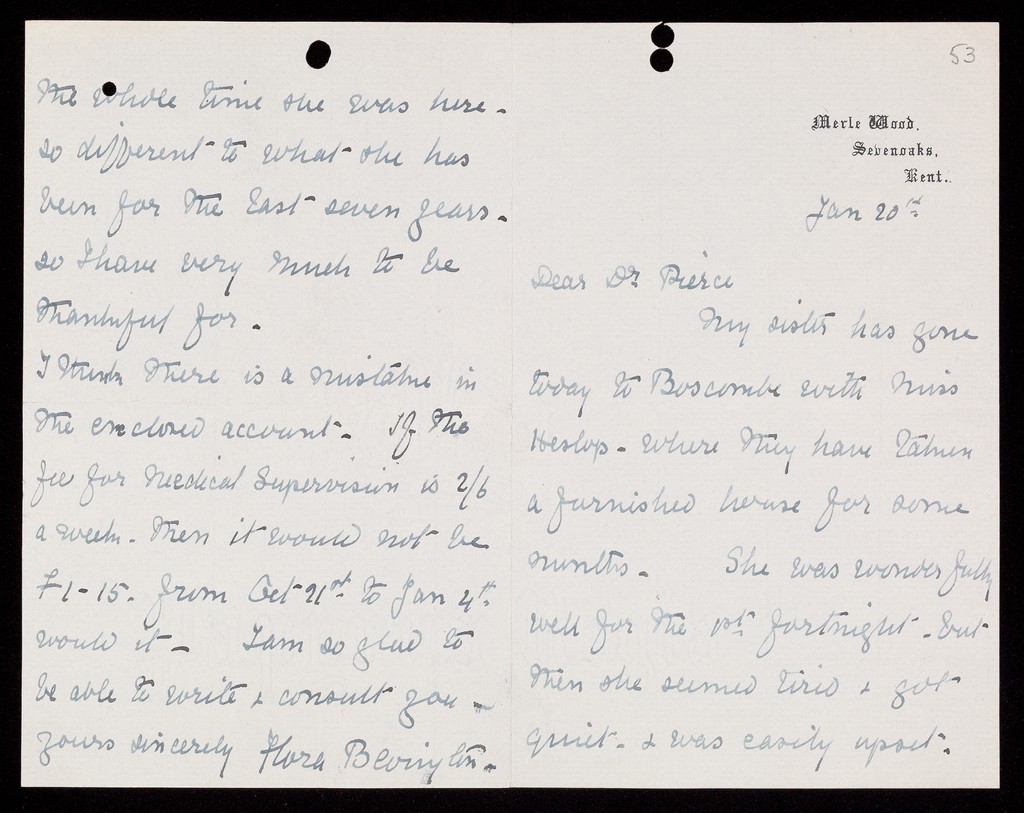 53
Merle Wood.
Sevenoaks,
Kent.
Jan 20th
Dear Dr. Pierce
My sister has gone
today to Boscombe with Miss
Heslop - where they have taken
a furnished house for some
months - She was wonderfully
well for the 1st fortnight - but
then she seemed tired & got
quiet - & was easily upset.
the whole time she was here -
so different to what she has
been for the last seven years -
so I have very much to be
thankful for.
I think there is a mistake in
the enclosed account - If the
fee for Medical Supervision is 2/6
a week - then it would not be
£1-15. from Oct 21st to Jan 4th
would it - I am so glad to
be able to write & consult you -
yours sincerely Flora Bevington -